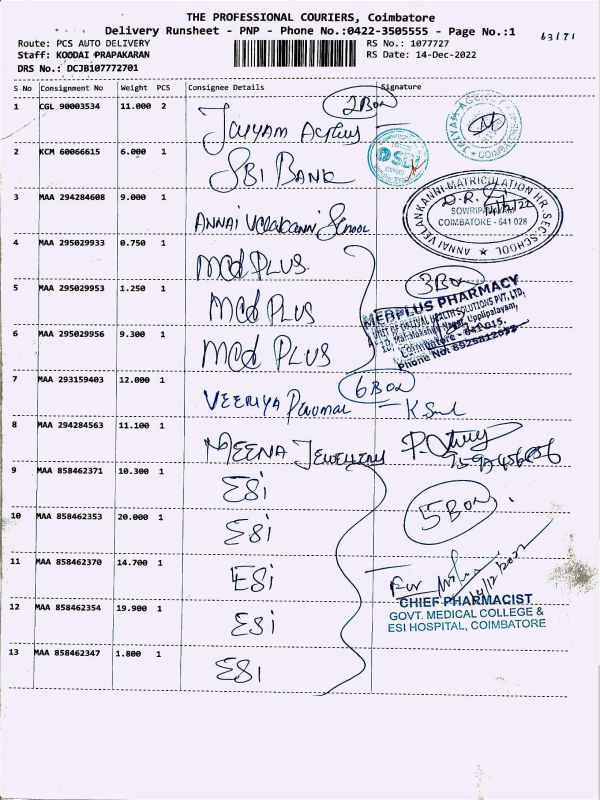 THE PROFESSIONAL COURIERS, Coimbatore
Delivery Runsheet - PNP - Phone No.:0422-3505555 - Page No.:1
Route: PCS AUTO DELIVERY
RS No.: 1077727
Staff: KOODAI PRAPAKARAN
RS Date: 14-Dec-2022
DRS No.: DCJB107772701
S No Consignment No Weight PCS Consignee Details Signature
1 CGL 90003534 11.000 2
2 Box
2 KCM 60066615 6.000 1 SBI BANK
3 MAA 294284608 9.000 1 ANNAI School
ANNAI VELANKANNI MATRICULATION HR. SEC. SCHOOL
SOWRIPALAYAM
COIMBATORE - 641 028
4 MAA 295029933 0.750 1 Med PLUS
5 MAA 295029953 1.250 1 Med PLUS
3 Box
MEDPLUS PHARMACY
Coimbatore - 641 015.
6 MAA 295029956 9.300 1 Med PLUS
7 MAA 293159403 12.000 1 VEERIYA Perumal
6 Box
8 MAA 294284563 11.100 1 MEENA Jewellery
9 MAA 858462371 10.300 1 ESi
10 MAA 858462353 20.000 1 ESi
5 Box
11 MAA 858462370 14.700 1 ESi
For
14/12/2022
CHIEF PHARMACIST
GOVT. MEDICAL COLLEGE &
ESI HOSPITAL, COIMBATORE
12 MAA 858462354 19.900 1 ESi
13 MAA 858462347 1.800 1 ESi